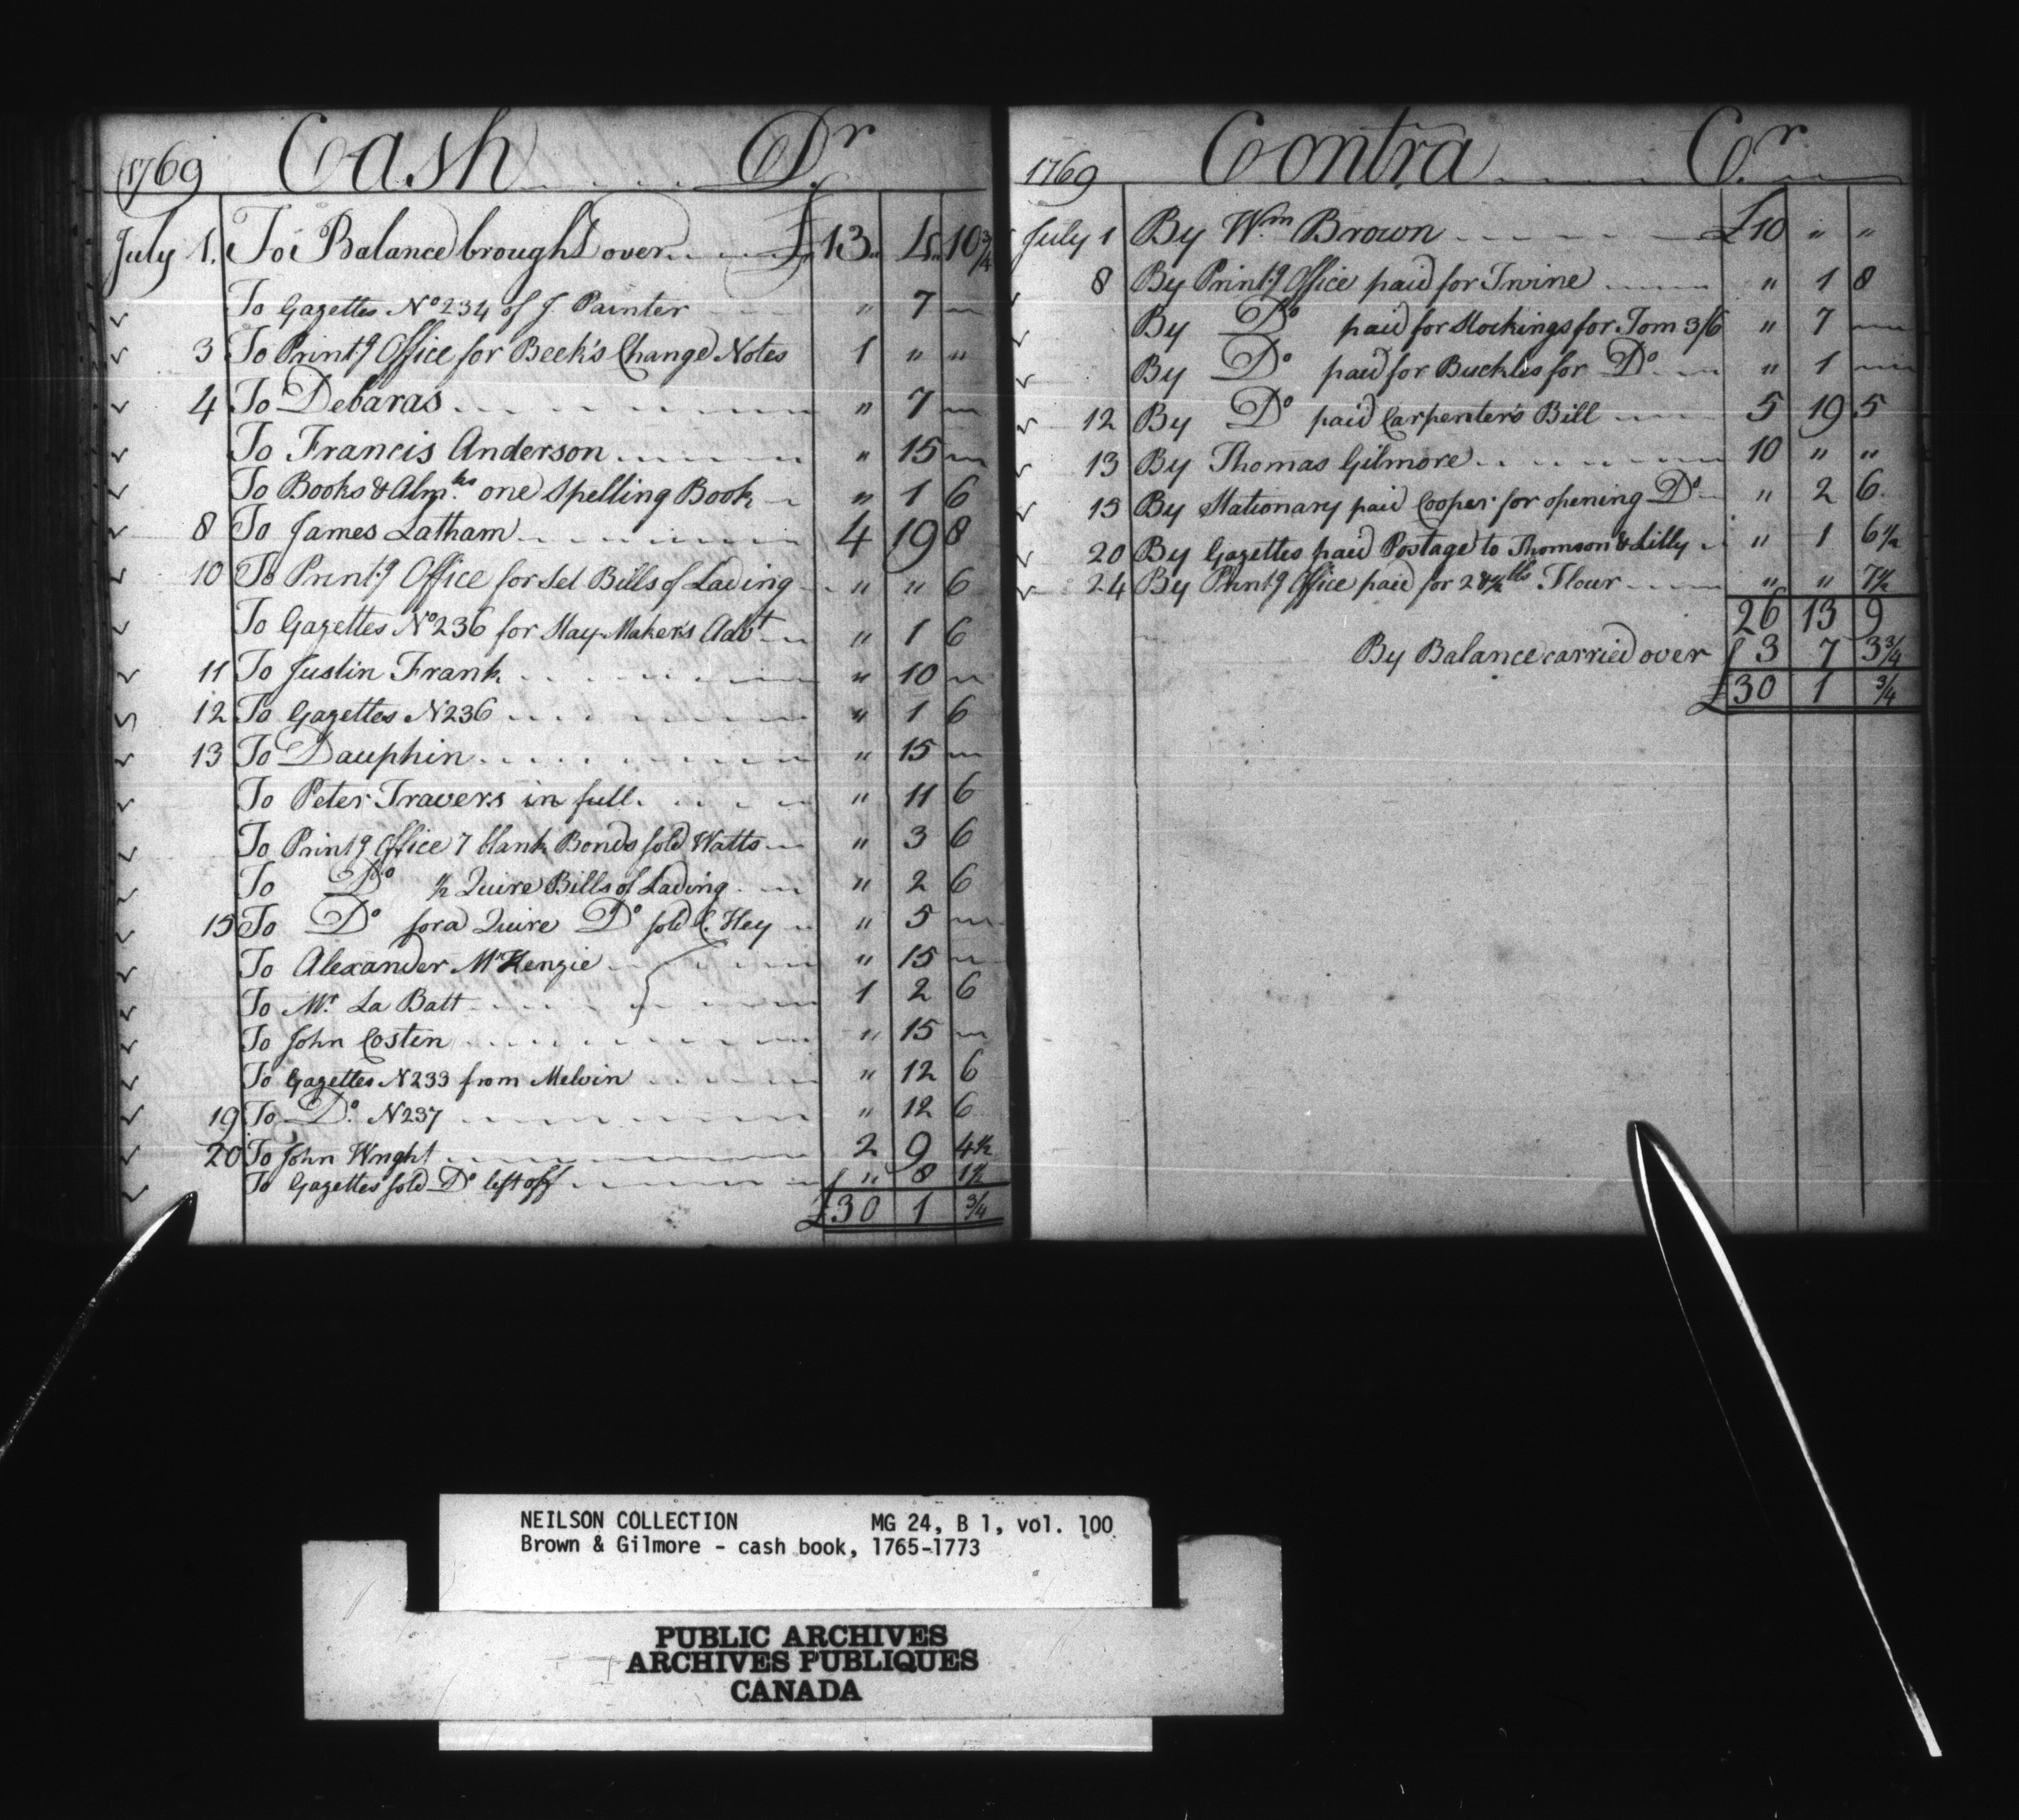 1769 Cash Dr
July 1. To Balance brought over £13 4 10 3/4
To Gazettes No 234 of J. Painter " 7 "
3 To Print.g Office for Beek's Change Notes 1 " "
4 To Debaras " 7 "
To Francis Anderson " 15 "
To Books & Alm.ks one Spelling Book " 1 6
8 To James Latham 4 19 8
10 To Print.g Office for Set Bills of Lading " " 6
To Gazettes No 236 for Stay-Maker's Advt " 1 6
11 To Justin Frank " 10 "
12 To Gazettes N236 " 1 6
13 To Dauphin " 15 "
To Peter Travers in full " 11 6
To Print.g Office 7 blank Bonds sold Watts " 3 6
To Do 1/2 Quire Bills of Lading " 2 6
15 To Do for a Quire Do sold C. Hey " 5 "
To Alexander McKenzie " 15 "
To Mr. La Batt 1 2 6
To John Costen " 15 "
To Gazettes N233 from Melvin " 12 6
19 To Do. N237 " 12 6
20 To John Wright 2 9 4 1/2
To Gazettes sold Do left off " 8 1 1/2
£30 1 3/4
1769 Contra Cr
July 1 By Wm Brown £10 " "
8 By Print.g Office paid for Twine " 1 8
By Do paid for Stockings for Tom 3/6 " 7 "
By Do paid for Buckles for Do " 1 "
12 By Do paid Carpenter's Bill 5 19 5
13 By Thomas Gilmore 10 " "
15 By Stationary paid Cooper for opening Do " 2 6
20 By Gazettes paid Postage to Thomson & Lilly " 1 6 1/2
24 By Print.g Office paid for lbs Flour " " 7 1/2
26 13 9
By Balance carried over 3 7 3 3/4
£30 1 3/4
NEILSON COLLECTION MG 24, B 1, vol. 100
Brown & Gilmore - cash book, 1765-1773
PUBLIC ARCHIVES
ARCHIVES PUBLIQUES
CANADA